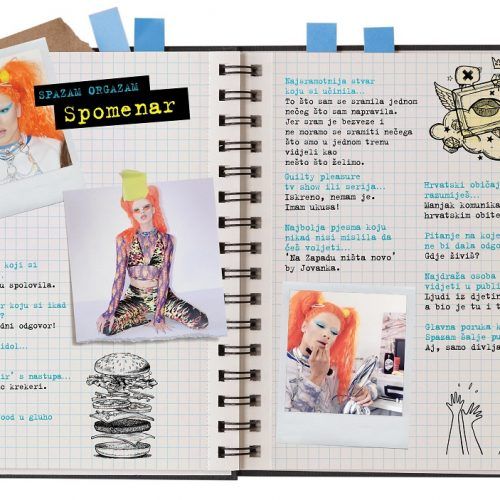 SPAZAM ORGAZAM
Spomenar
koji si
u spolovila.
r koju si ikad
?
dni odgovor!
idol...
ir' s nastupa...
c krekeri.
ood u gluho
Najsramotnija stvar
koju si učinila...
To što sam se sramila jednom
nečeg što sam napravila.
Jer sram je bezveze i
ne moramo se sramiti nečega
što smo u jednom trenu
vidjeli kao
nešto što želimo.
Guilty pleasure
tv show ili serija...
Iskreno, nemam je.
Imam ukusa!
Najbolja pjesma koju
nikad nisi mislila da
ćeš voljeti...
'Na Zapadu ništa novo'
by Jovanka.
Hrvatski običaj
razumiješ...
Manjak komunika
hrvatskim obite
Pitanje na koje
ne bi dala odgo
Gdje živiš?
Najdraža osoba
vidjeti u publi
Ljudi iz djetin
a bio je tu i t
Glavna poruka k
Spazam šalje pu
Aj, samo divlja